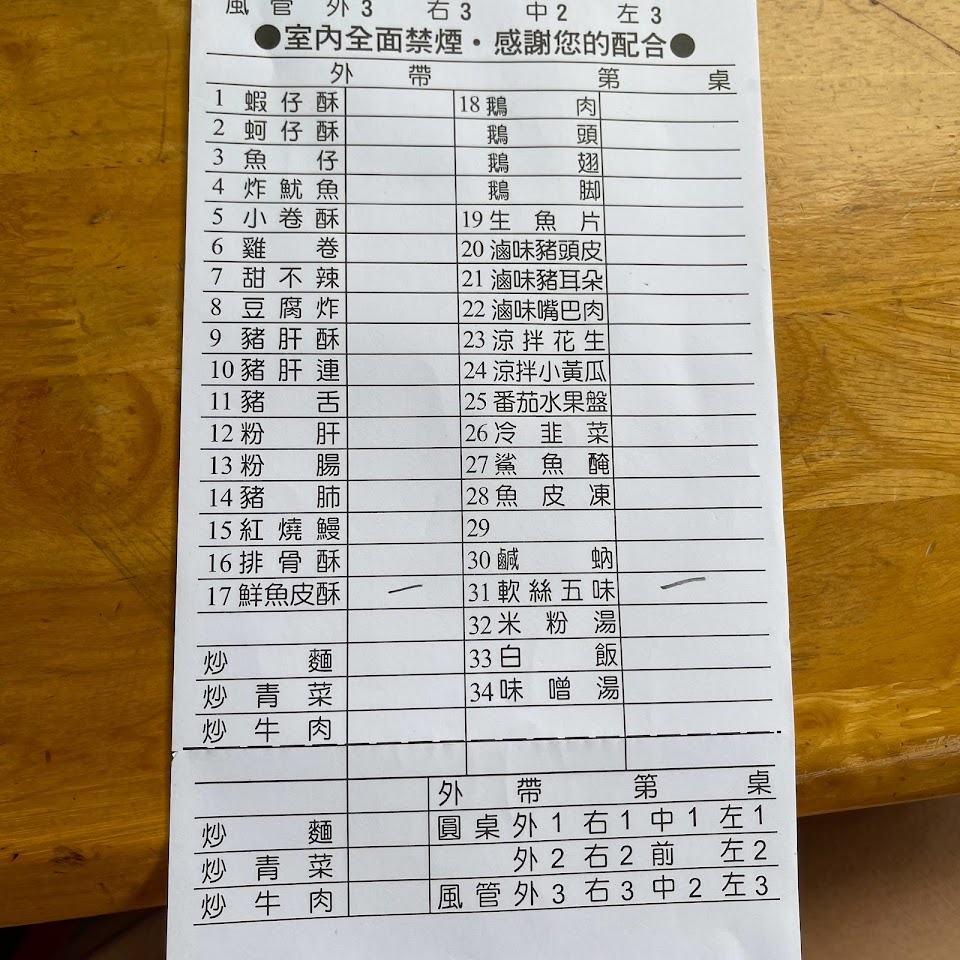 風管 外3 右3 中2 左3
●室內全面禁煙·感謝您的配合●
外帶 第 桌
1 蝦仔酥 18 鵝肉
2 蚵仔酥 鵝頭
3 魚仔 鵝翅
4 炸魷魚 鵝脚
5 小卷酥 19 生魚片
6 雞卷 20 滷味豬頭皮
7 甜不辣 21 滷味豬耳朵
8 豆腐炸 22 滷味嘴巴肉
9 豬肝酥 23 涼拌花生
10 豬肝連 24 涼拌小黃瓜
11 豬舌 25 番茄水果盤
12 粉肝 26 冷韭菜
13 粉腸 27 鯊魚醃
14 豬肺 28 魚皮凍
15 紅燒鰻 29
16 排骨酥 30 鹹蚋
17 鮮魚皮酥 一 31 軟絲五味 一
32 米粉湯
炒麵 33 白飯
炒青菜 34 味噌湯
炒牛肉
外帶 第 桌
炒麵 圓桌 外1 右1 中1 左1
炒青菜 外2 右2 前 左2
炒牛肉 風管 外3 右3 中2 左3